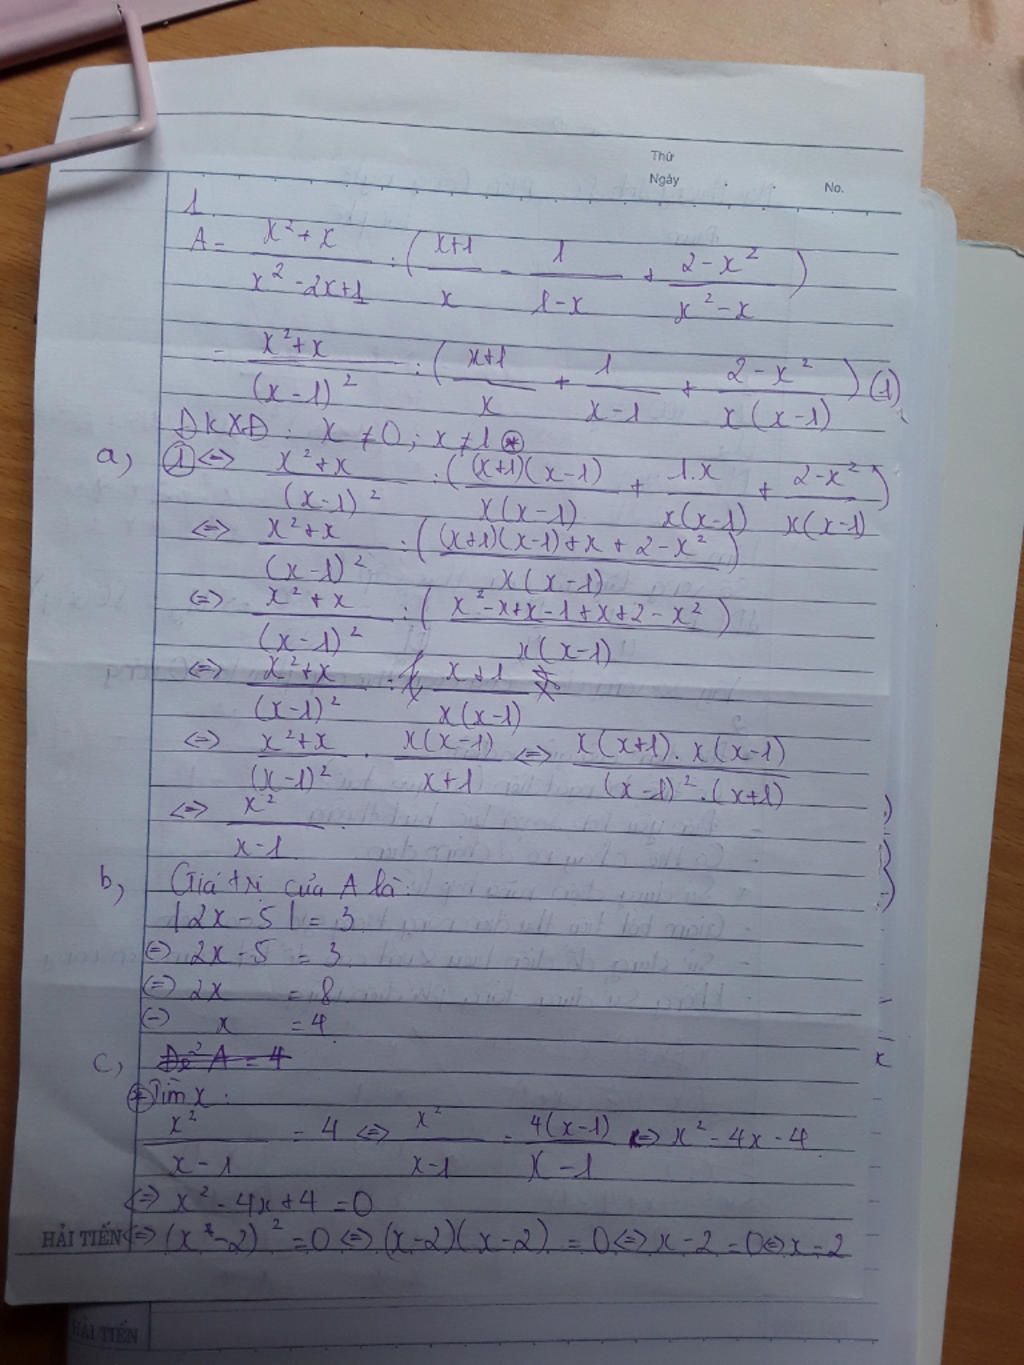 Thứ
Ngày . . No.
1.
A = (x² + x)/(x² - 2x + 1) : ((x+1)/x - 1/(1-x) + (2-x²)/(x²-x))
= (x² + x)/(x-1)² : ((x+1)/x + 1/(x-1) + (2-x²)/(x(x-1))) (1)
ĐKXĐ : x ≠ 0 ; x ≠ 1 (*)
a, (1) <=> (x² + x)/(x-1)² : ((x+1)(x-1)/(x(x-1)) + 1.x/(x(x-1)) + (2-x²)/(x(x-1)))
<=> (x² + x)/(x-1)² : (((x+1)(x-1) + x + 2 - x²)/(x(x-1)))
<=> (x² + x)/(x-1)² : ((x² - x + x - 1 + x + 2 - x²)/(x(x-1)))
<=> (x² + x)/(x-1)² : (x+1)/(x(x-1))
<=> (x² + x)/(x-1)² . x(x-1)/(x+1) <=> (x(x+1) . x(x-1))/((x-1)² . (x+1))
<=> x²/(x-1)
b, Giá trị của A là:
|2x - 5| = 3
<=> 2x - 5 = 3
<=> 2x = 8
<=> x = 4
c, Để A = 4
(*) Tìm x :
x²/(x-1) = 4 <=> x²/(x-1) = 4(x-1)/(x-1) <=> x² = 4x - 4
<=> x² - 4x + 4 = 0
HẢI TIẾN <=> (x - 2)² = 0 <=> (x-2)(x-2) = 0 <=> x - 2 = 0 <=> x = 2
HẢI TIẾN